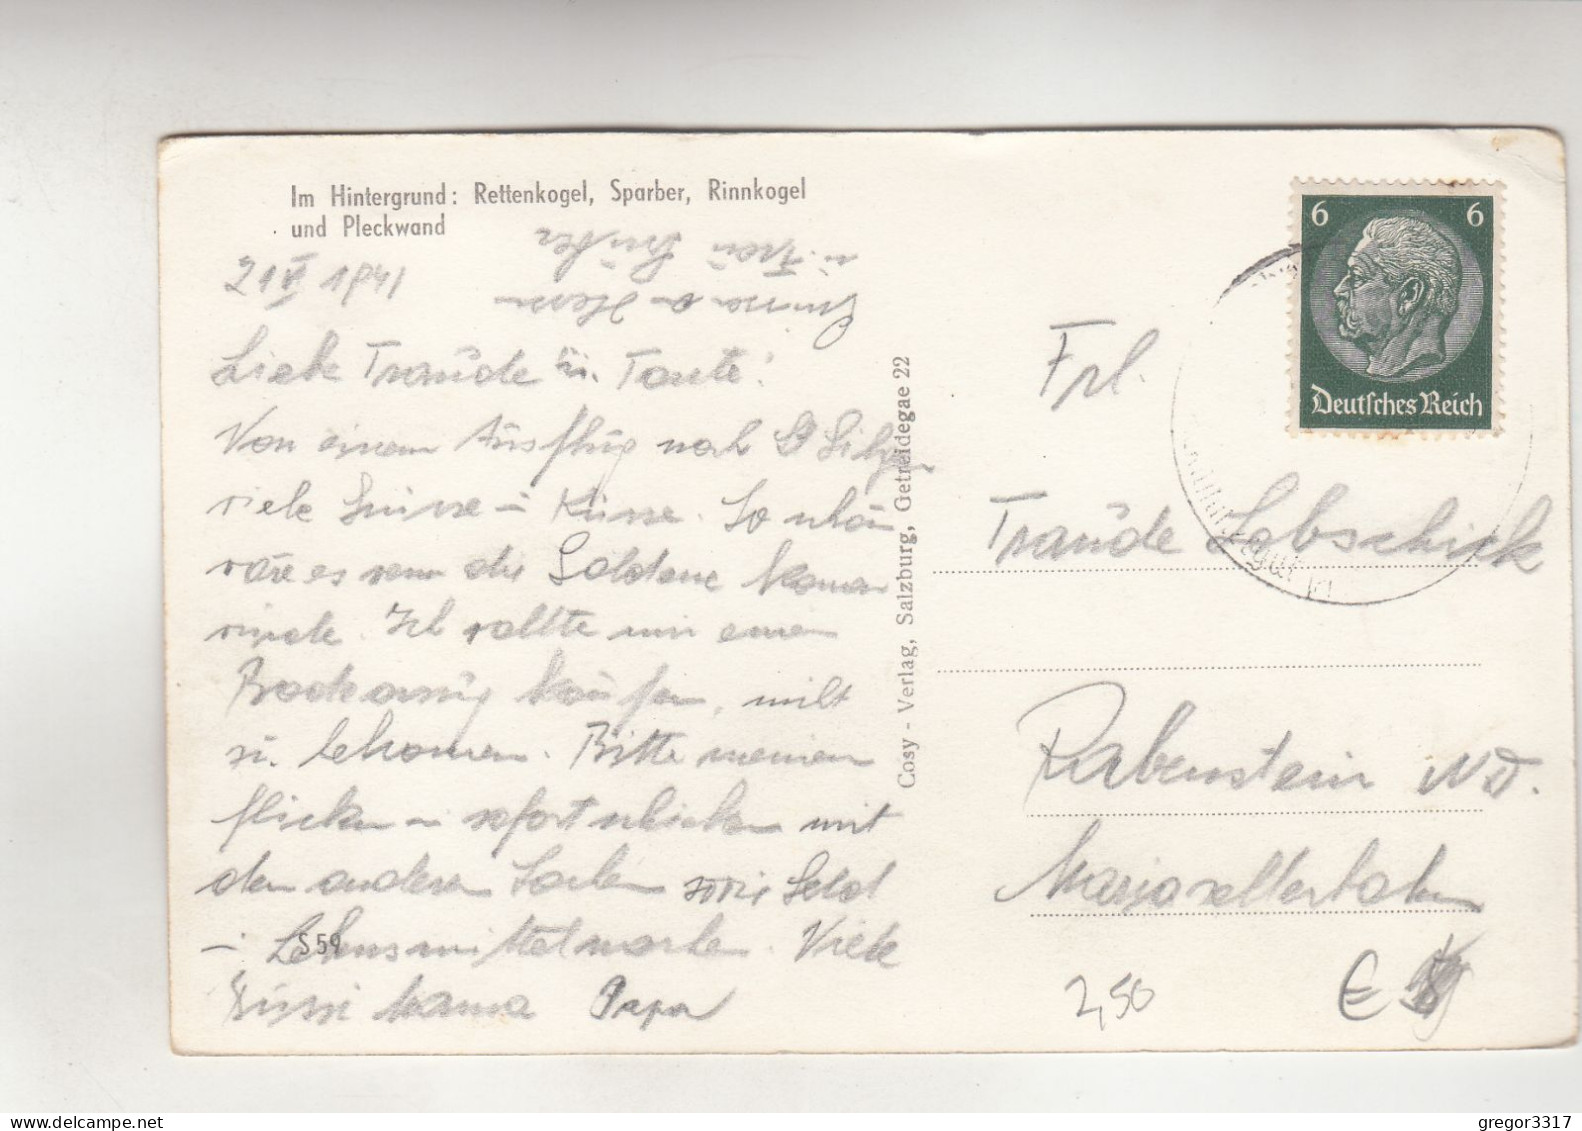 Im Hintergrund: Rettenkogel, Sparber, Rinnkogel
und Pleckwand
21 V 1941
Liebe Traude u. Tante!
Von einem Ausflug nach St Gilgen
viele Grüsse u Küsse. So schön
wäre es wenn die
würde. Ich wollte mir einen
kaufen, nicht
zu bekommen. Bitte meinen
flicken u sofort schicken mit
den anderen Sachen sowie Geld
u Lebensmittelmarken. Viele
S 59
Küsse Mama Papa
Emma u Herr
u. Frau Huber
Cosy - Verlag, Salzburg, Getreidegae 22
6 6
Deutsches Reich
Frl.
Traude Lobschick
Rabenstein ND.
Mariazellerbahn
2,50
€
gregor3317